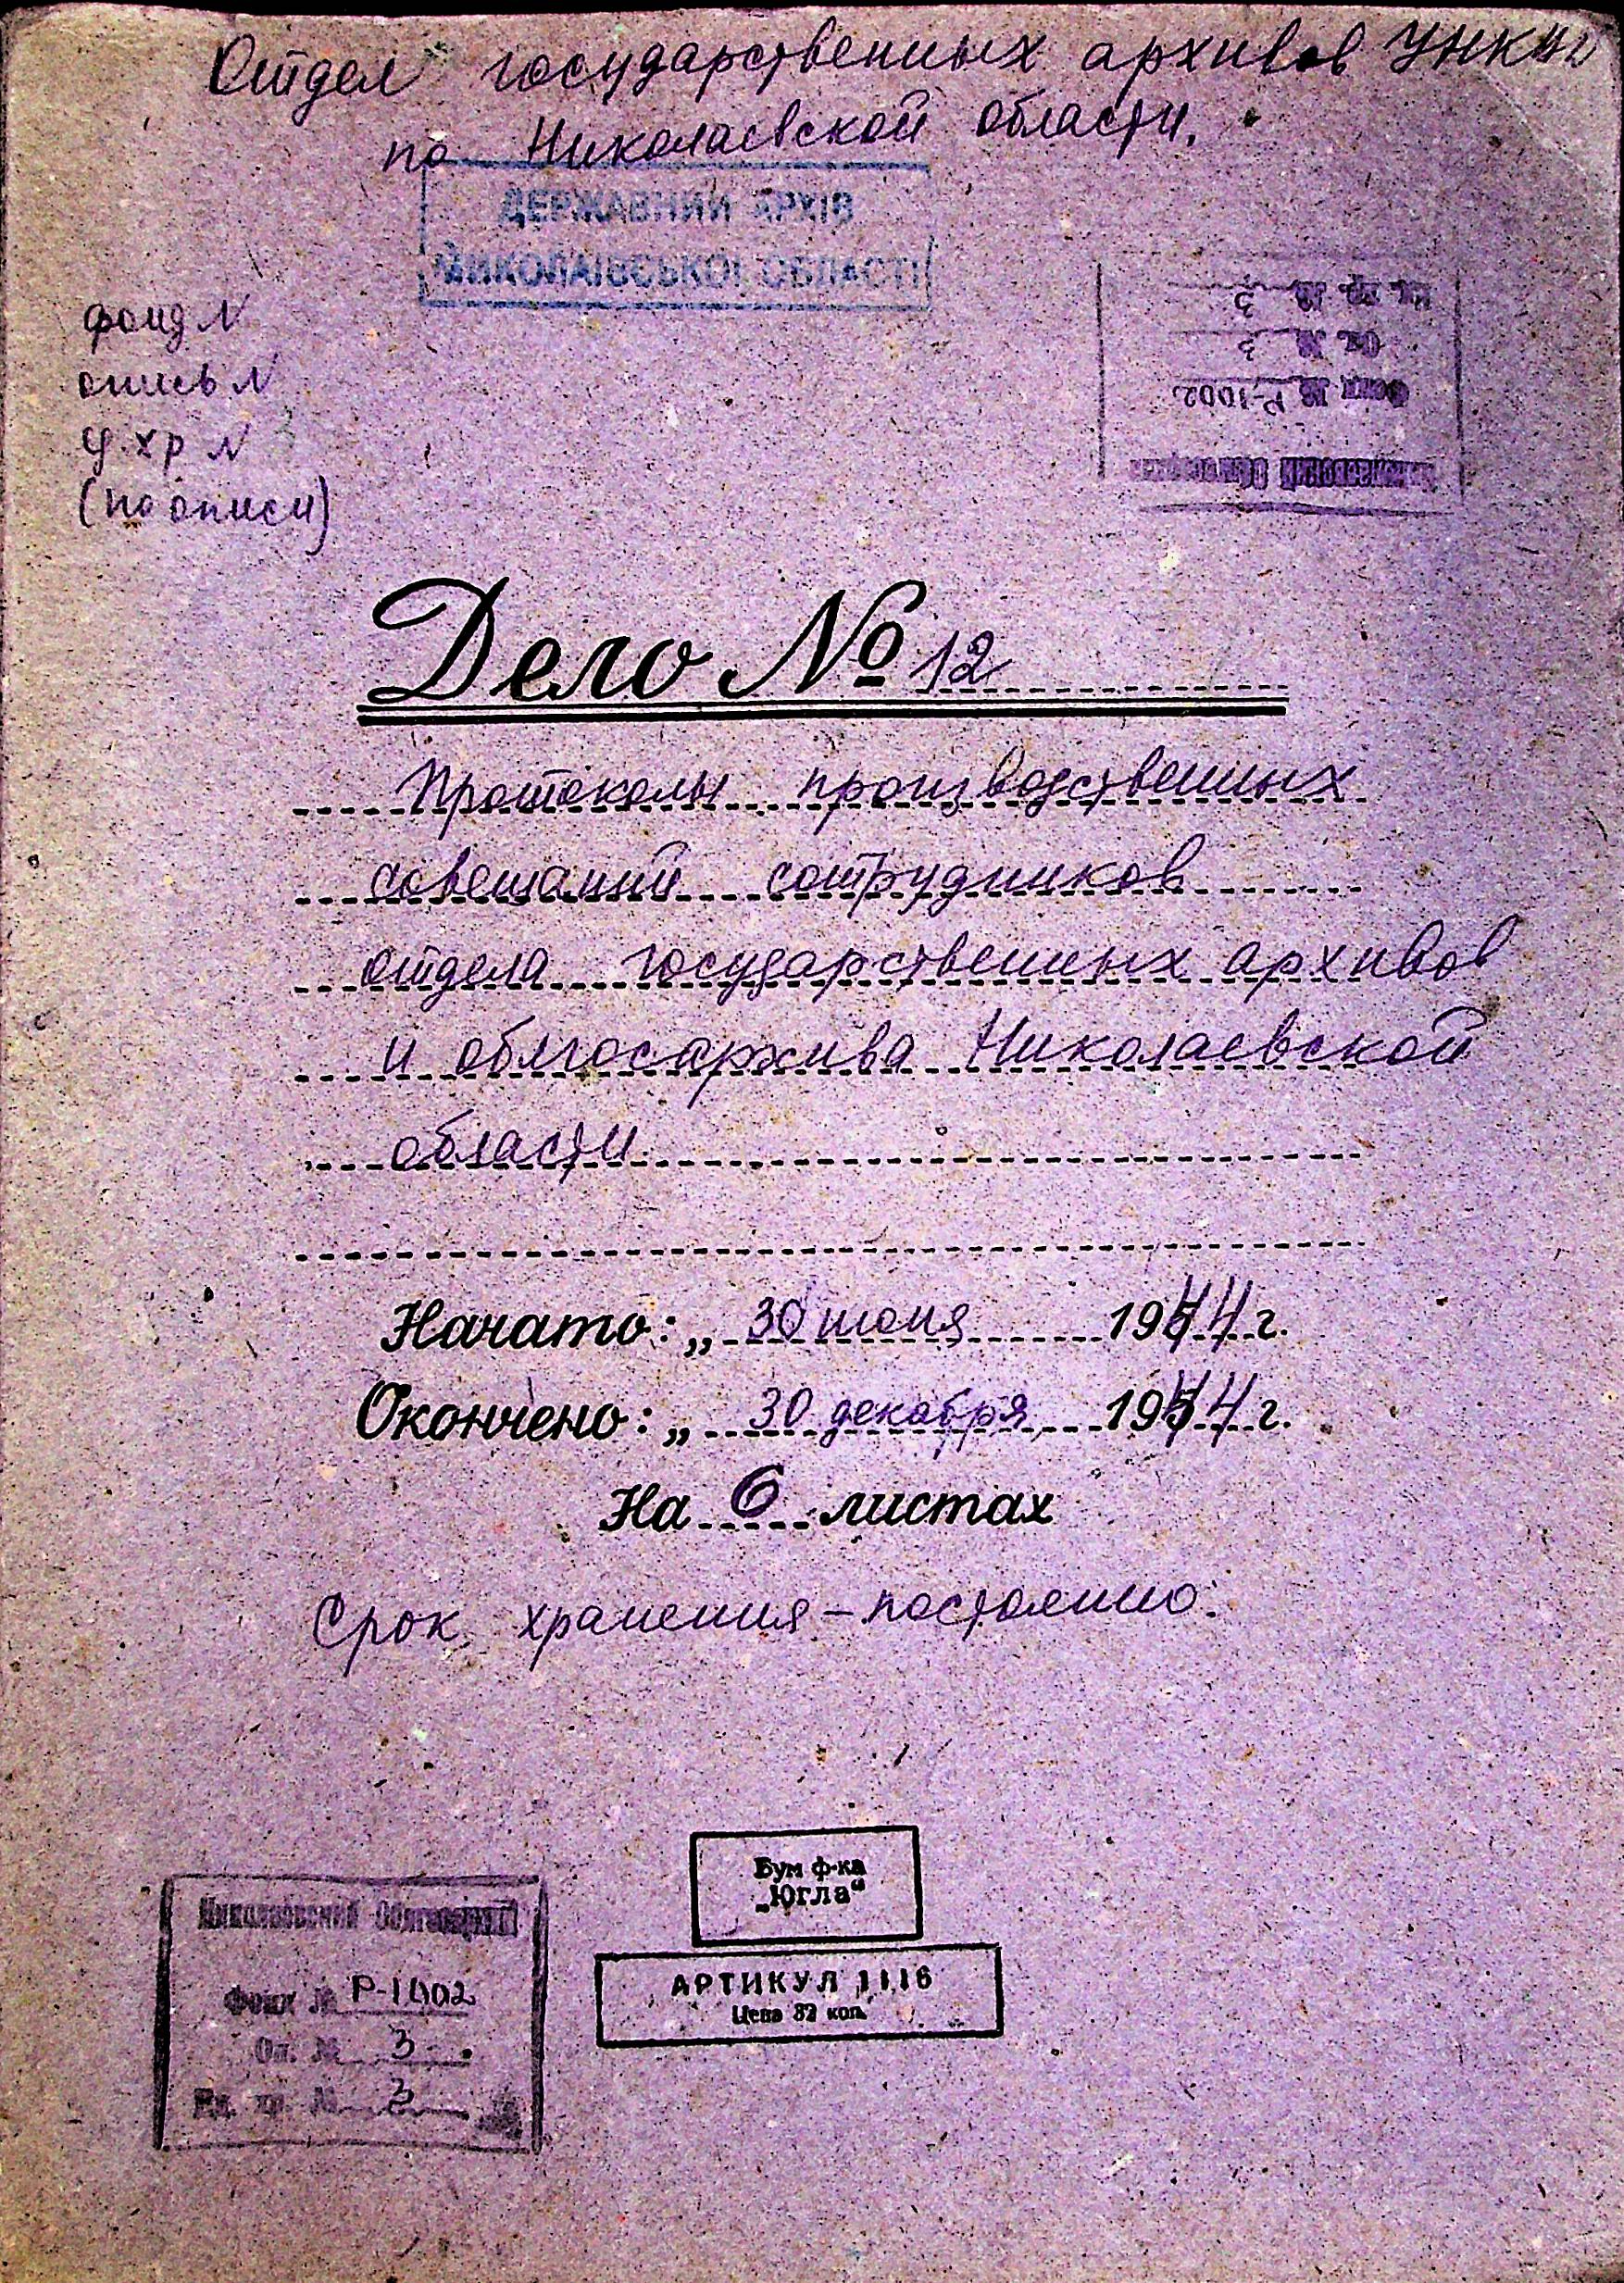 Отдел государственных архивов УНКВД
по Николаевской области.
ДЕРЖАВНИЙ АРХІВ
МИКОЛАЇВСЬКОЇ ОБЛАСТІ
фонд N
опись N
Фонд № Р-1002
Оп. № 3
Ед. хр. № 3
у.хр N
(по описи)
Дело № 12
Протоколы производственных
совещаний сотрудников
отдела государственных архивов
и облгосархива Николаевской
области.
Начато: „ 30 июня 1944 г.
Окончено: „ 30 декабря 1944 г.
На 6 листах
Срок хранения – постоянно.
Бум ф-ка
„Югла“
АРТИКУЛ 1116
Цена 82 коп.
Николаевский Облгосархив
Фонд № Р-1002
Оп. № 3
Ед. хр. № 3